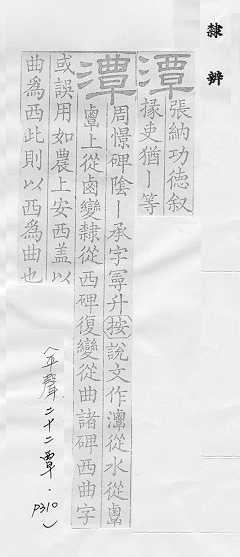 隸辨
潭
張納功徳叙
掾吏猶丨等
周憬碑陰丨承字升按說文作從水從
上從鹵變隸從西碑復變從曲諸碑西曲字
或誤用如農上安西盖以
曲爲西此則以西爲曲也
(平聲.二十二覃.p310)